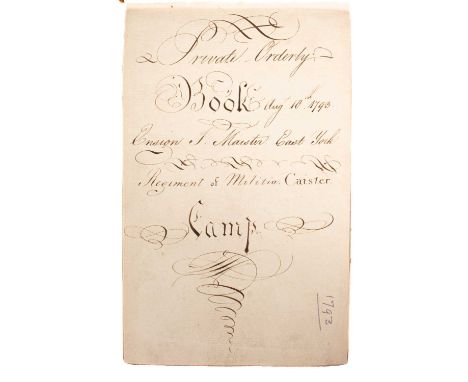 Private Orderly
Book Augt 10th 1793
Ensign J. Maister East York
Regiment of Militia Caister
Camp
1793